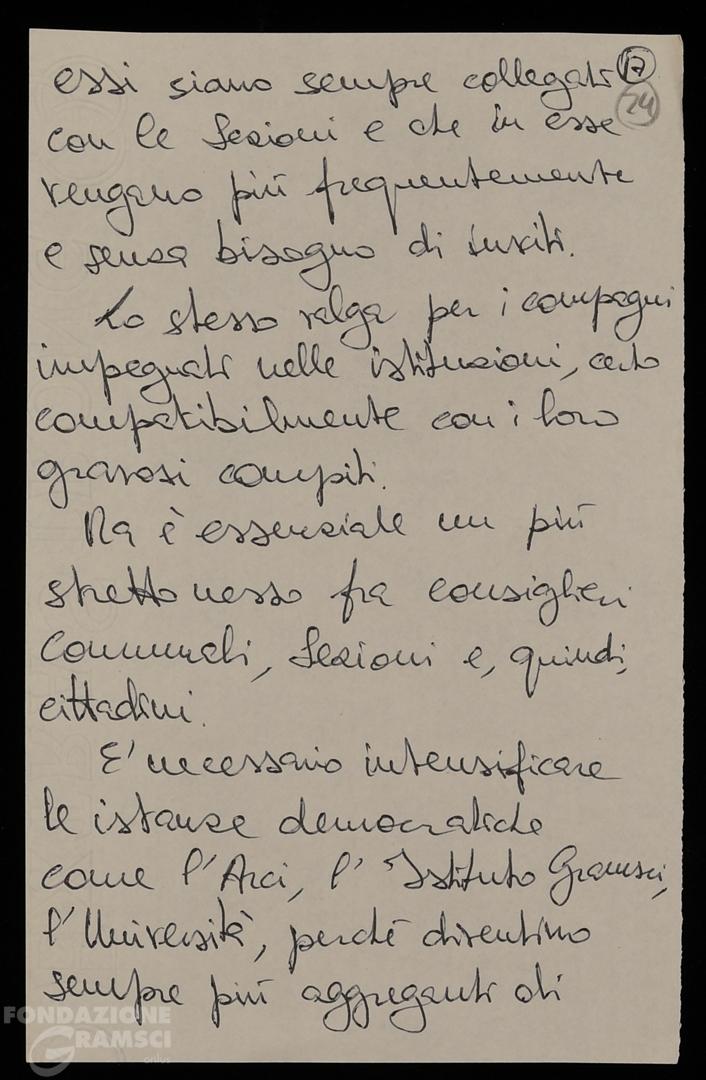 17
24
essi siano sempre collegati
con le Sezioni e che in esse
vengano più frequentemente
e senza bisogno di inviti.
Lo stesso valga per i compagni
impegnati nelle istituzioni, certo
compatibilmente con i loro
gravosi compiti.
Ma è essenziale un più
stretto nesso fra consiglieri
Comunali, Sezioni e, quindi,
cittadini.
E' necessario intensificare
le istanze democratiche
come l'Arci, l'Istituto Gramsci,
l'Università, perché diventino
sempre più aggreganti di
FONDAZIONE
GRAMSCI
onlus